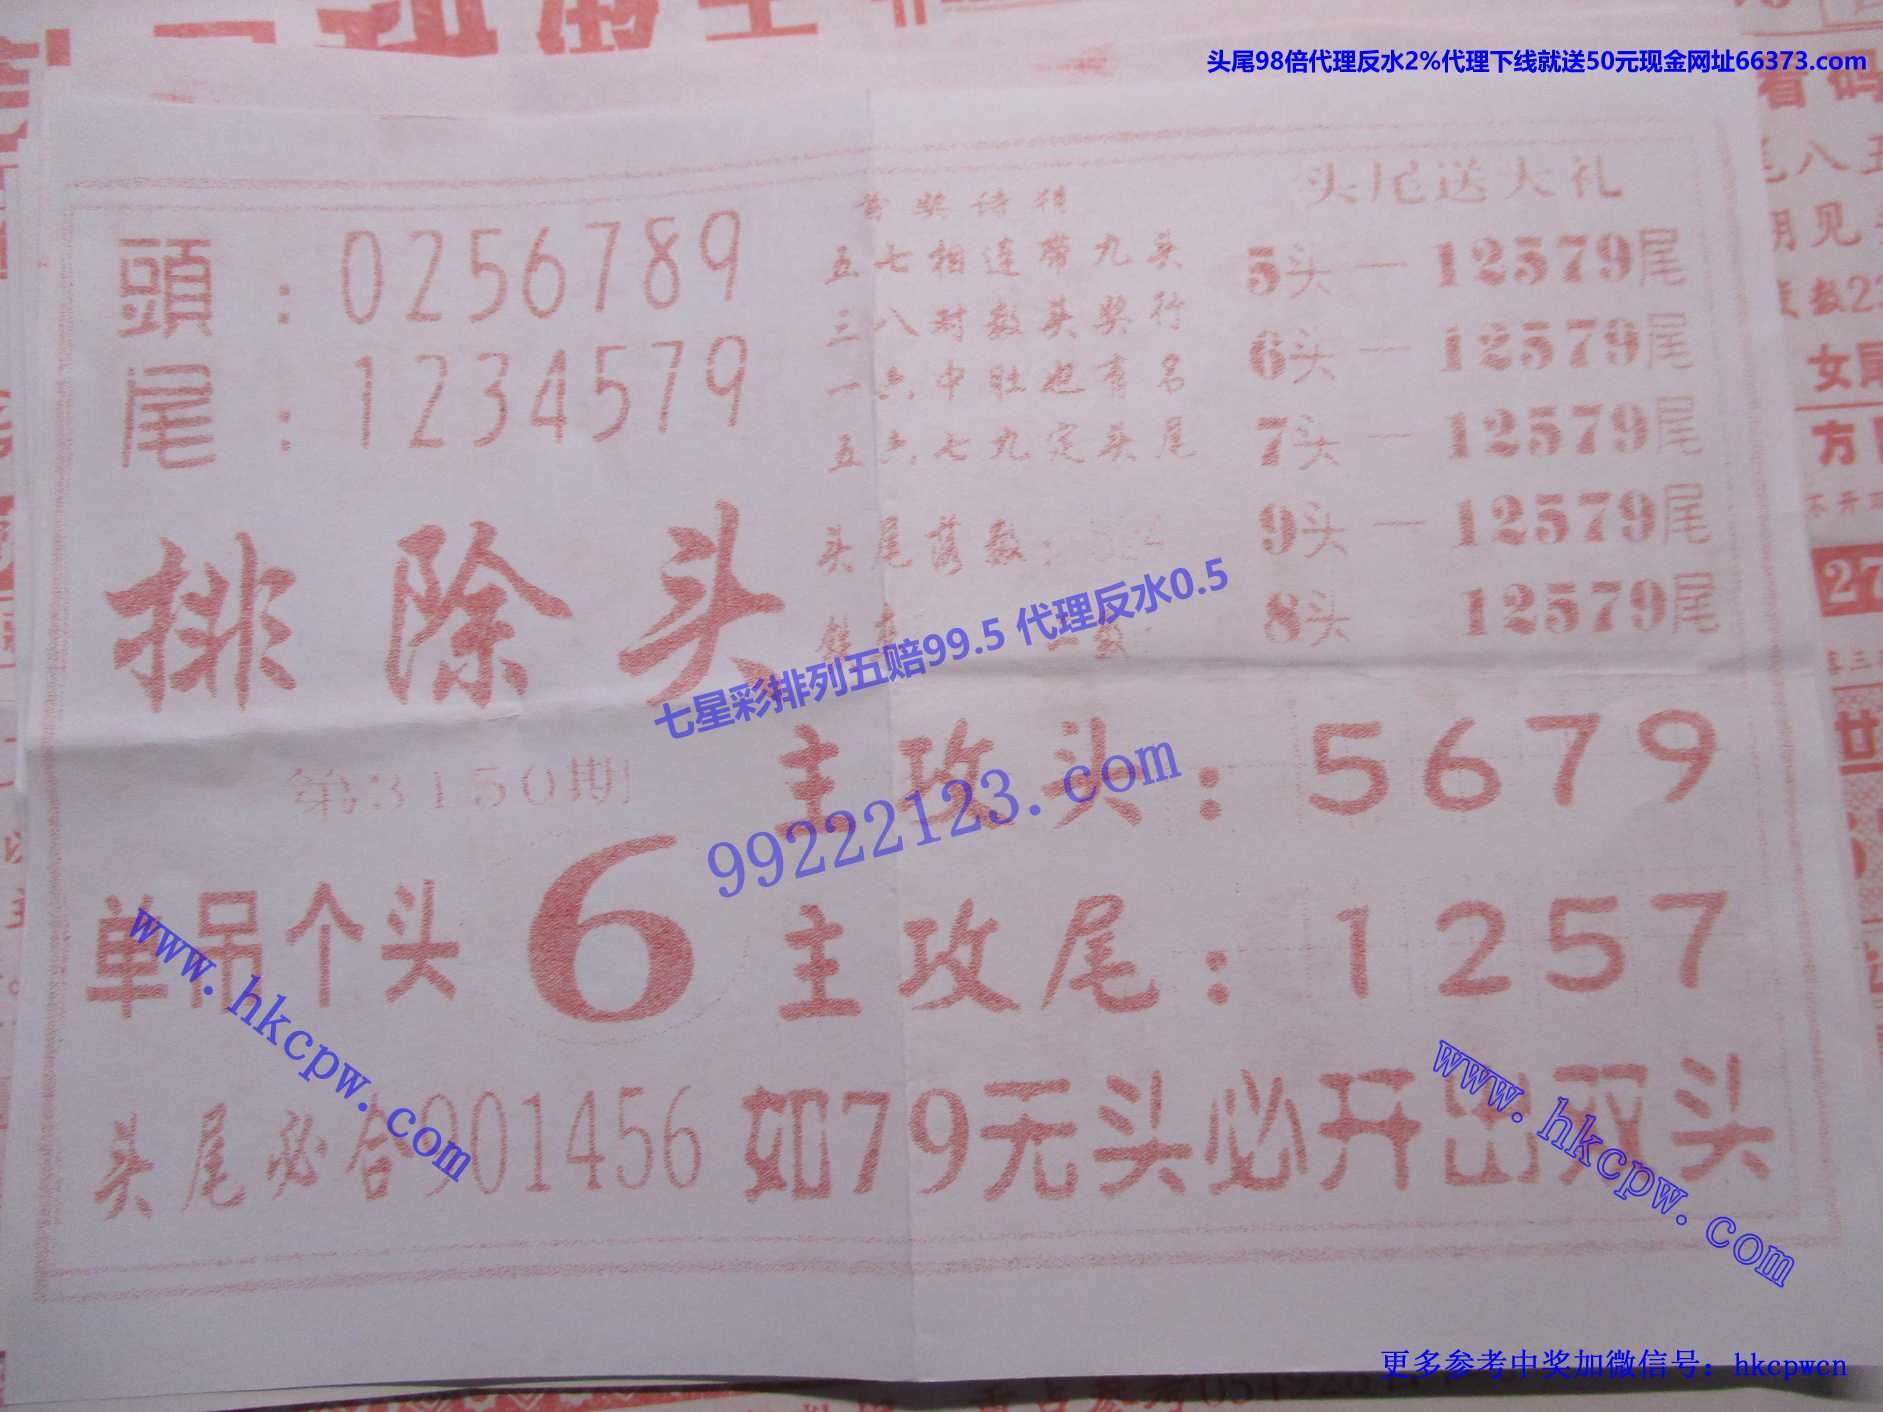 头尾98倍代理反水2%代理下线就送50元现金网址66373.com
頭：0256789
尾：1234579
首奖诗猜
五七相连带九头
三八对数头奖行
一六中肚也有名
五六七九定头尾
头尾落数：
头尾送大礼
5头一12579尾
6头一12579尾
7头一12579尾
9头一12579尾
8头 12579尾
排除头
七星彩排列五赔99.5 代理反水0.5
99222123.com
第3150期
主攻头：5679
单吊个头6
主攻尾：1257
www.hkcpw.com
www.hkcpw.com
头尾必合901456如79无头必开出双头
更多参考中奖加微信号：hkcpwcn
看码
八五
期见
数22
女尾
方
不开
27
世